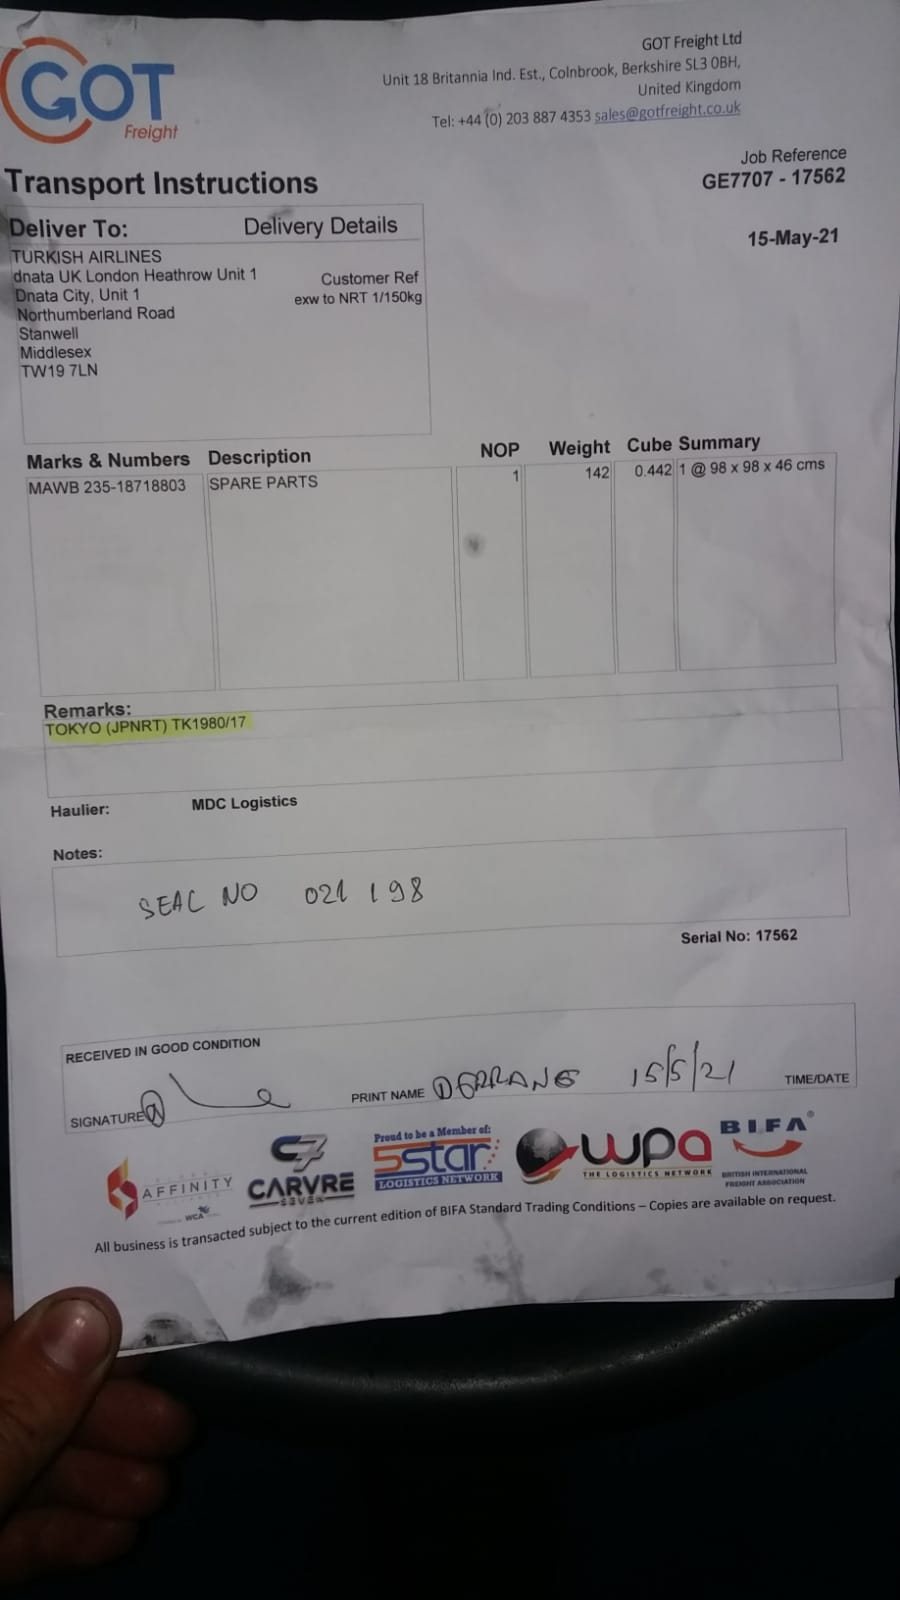 GOT
Freight
GOT Freight Ltd
Unit 18 Britannia Ind. Est., Colnbrook, Berkshire SL3 0BH,
United Kingdom
Tel: +44 (0) 203 887 4353 sales@gotfreight.co.uk
Job Reference
GE7707 - 17562
Transport Instructions
15-May-21
Deliver To: Delivery Details
TURKISH AIRLINES
dnata UK London Heathrow Unit 1
Dnata City, Unit 1
Northumberland Road
Stanwell
Middlesex
TW19 7LN
Customer Ref
exw to NRT 1/150kg
Marks & Numbers Description NOP Weight Cube Summary
MAWB 235-18718803 SPARE PARTS 1 142 0.442 1 @ 98 x 98 x 46 cms
Remarks:
TOKYO (JPNRT) TK1980/17
Haulier: MDC Logistics
Notes:
SEAL NO 021 198
Serial No: 17562
RECEIVED IN GOOD CONDITION
SIGNATURE PRINT NAME 15/5/21 TIME/DATE
AFFINITY
WCA
C7
CARVRE
SEVEN
Proud to be a Member of:
5star
LOGISTICS NETWORK
wpa
THE LOGISTICS NETWORK
BIFA®
BRITISH INTERNATIONAL
FREIGHT ASSOCIATION
All business is transacted subject to the current edition of BIFA Standard Trading Conditions – Copies are available on request.